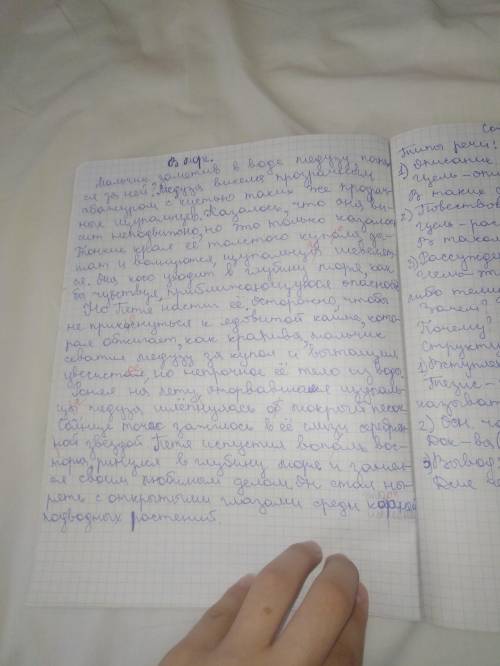 В воде.
Мальчик, заметив в воде медузу, погнал-
ся за ней. Медуза висела прозрачным
абажуром с кистью таких же прозрач-
ных щупальцев. Казалось, что она ви-
сит неподвижно, но это только казалось
Тонкие края её толстого купола ды-
шат и волнуются, щупальца шевелят-
ся. Она косо уходит в глубину моря, как
бы чувствуя приближающуюся опасность
Но Петя настиг её. Осторожно, чтобы
не прикоснуться к ядовитой кайме, кото-
рая обжигает, как крапива, мальчик
схватил медузу за купол и вытащил
увесистое, но непрочное её тело из воды
на лету оторвавшиеся щупаль-
цы медуза шлёпнулась об мокрый песок
Солнце тотчас зажглось в её слизи серебря-
ной звездой. Петя испустил вопль вос-
торга, ринулся в глубину моря и занял-
ся своим любимым делом. Он стал ны-
рять с открытыми глазами среди
подводных растений.
Типы речи:
1) Описание
цель - опи
В такие
2) Повествов
цель - рас
В такой
3) Рассужде
цель -
либо
Зачем?
Почему?
Структу
1) Вступлен
Тезис -
2) Осн. ча
Док-ва
3) Вывод